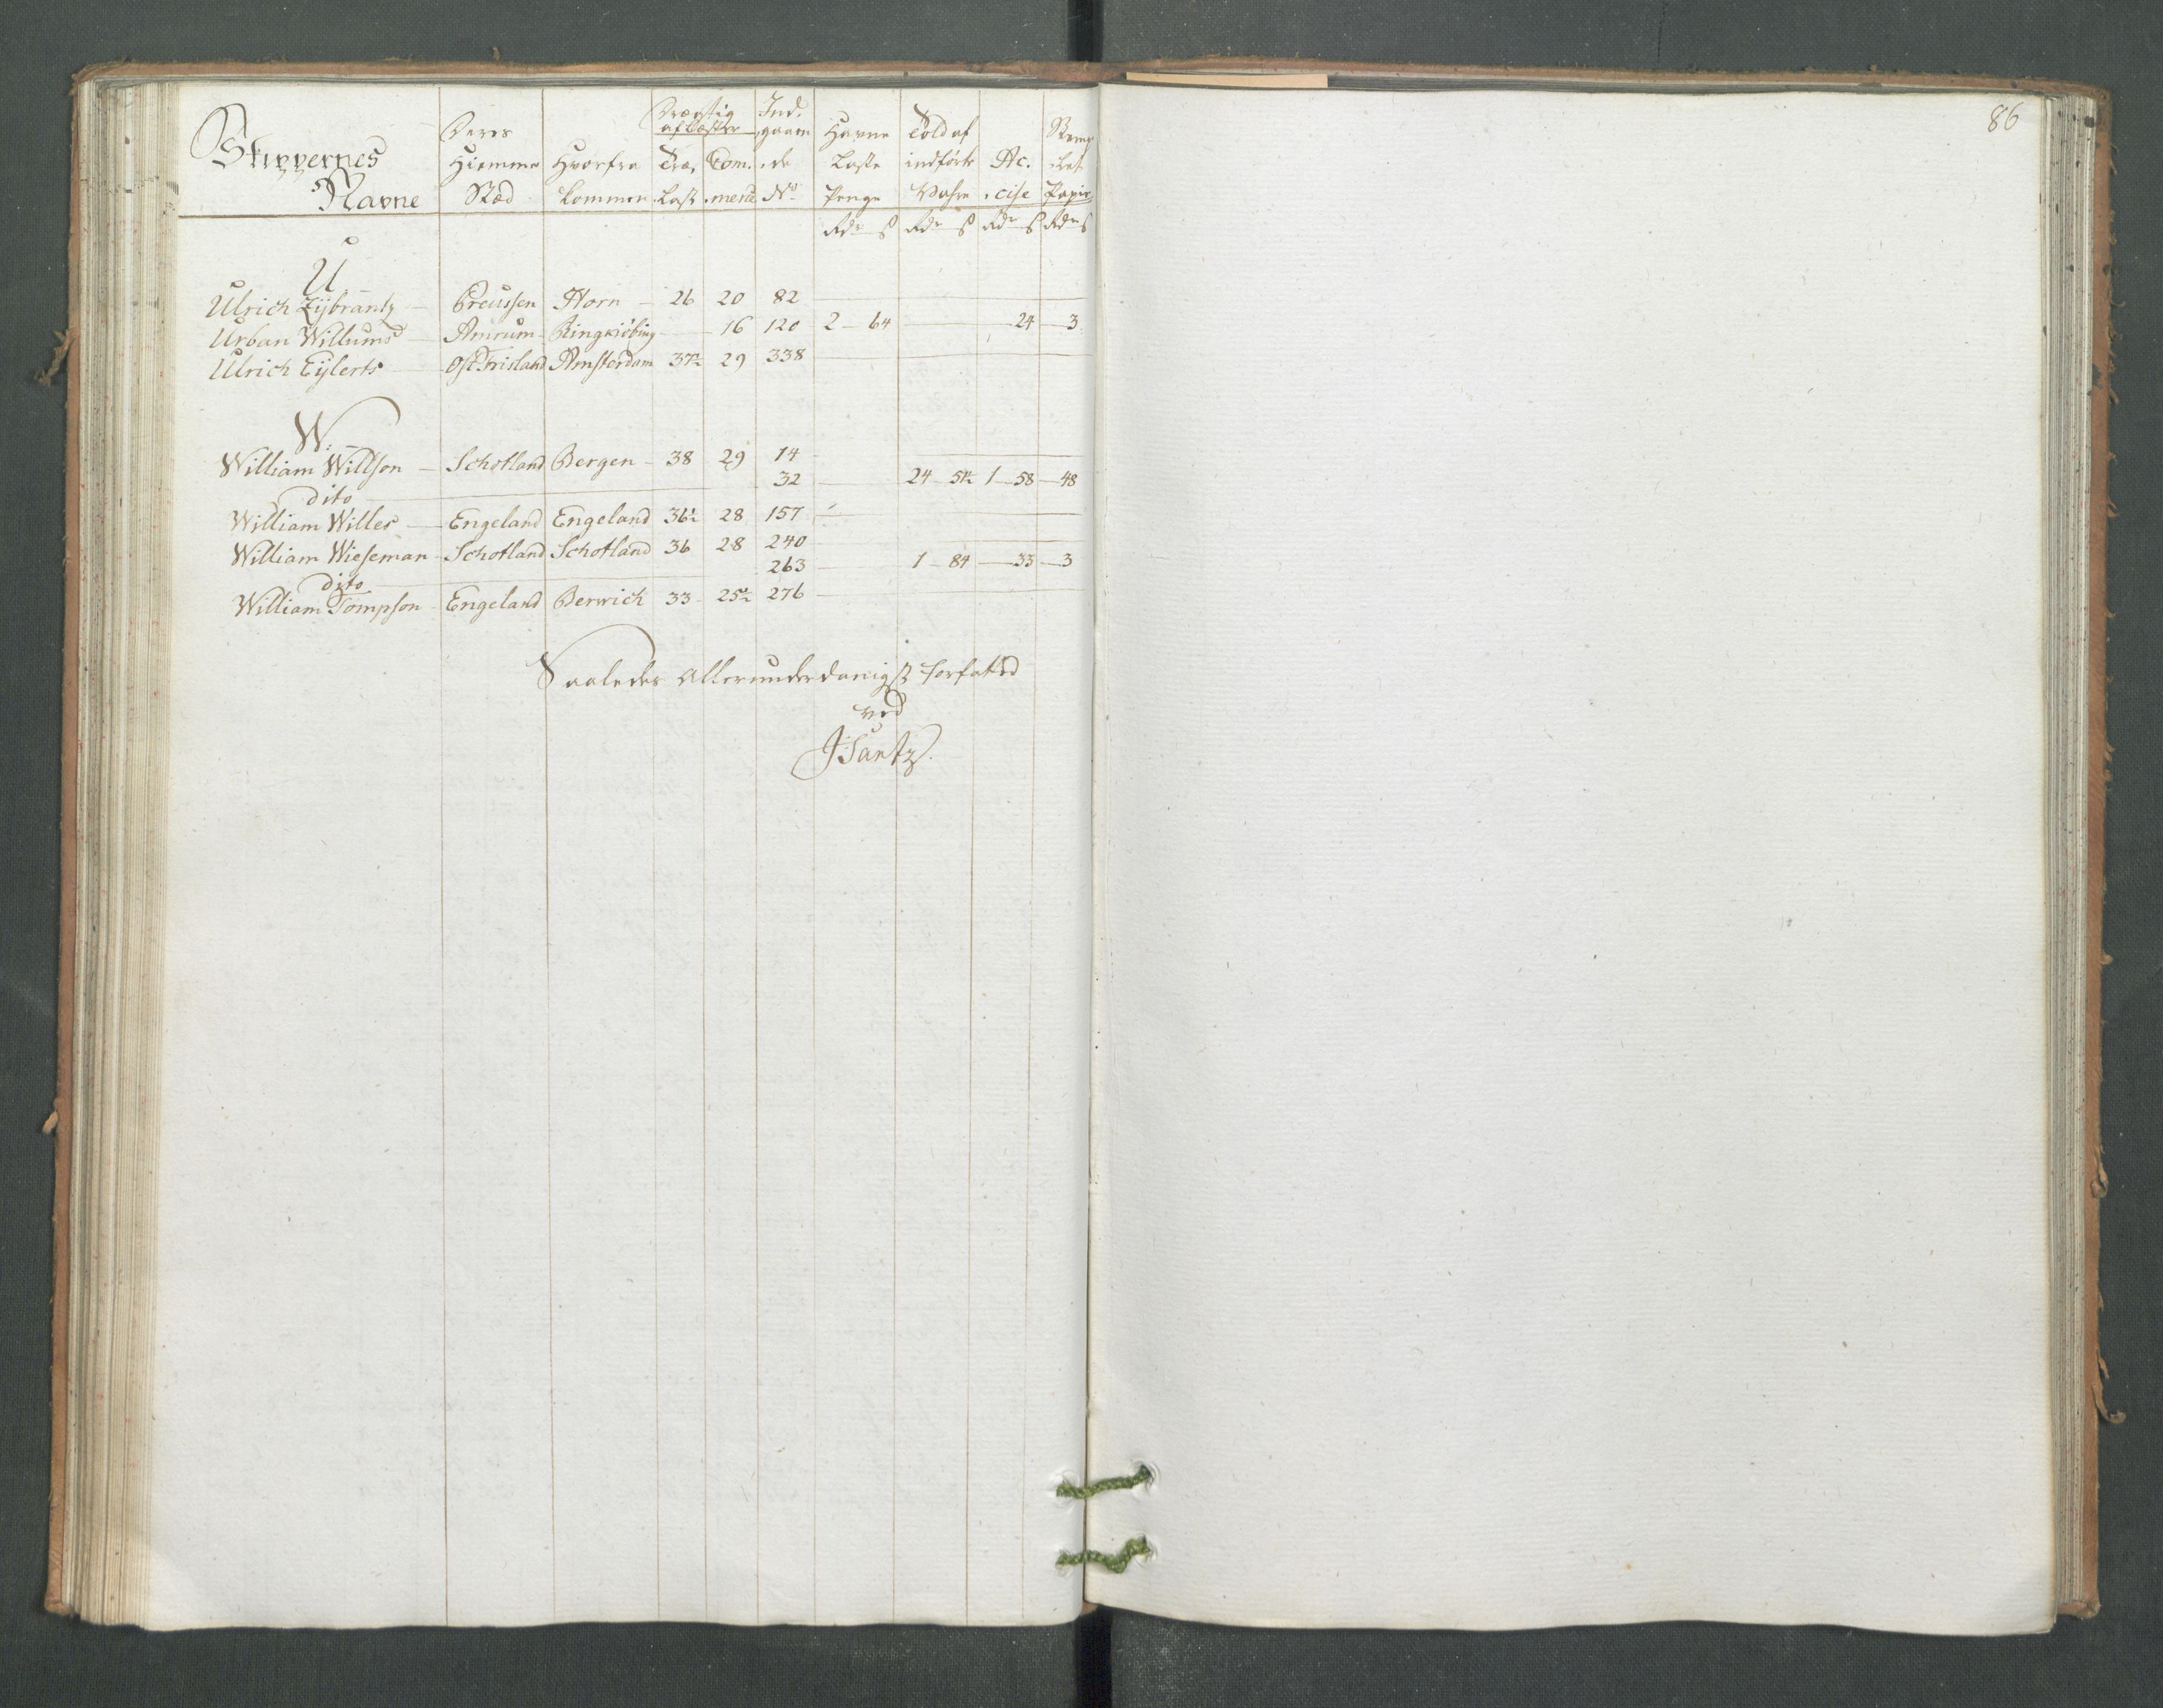 86
Skippernes Navne | Deres Hiemme Stæd | Hvorfra kommen | Drægtig af Læster Træ, Last | Com. merce | Ind, gaaen, de No. | Havne Laste Penge | Told af indførte Vahre | Ac. cise | Stemp let Papir
Rdr ß | Rdr ß | Rdr ß | Rdr ß
U
Ulrich Zijbrantz — Preussen Horn — 26 20 82
Urban Willums — Amrum Ringkiöbing — 16 120 2 — 64 — 24 — 3
Ulrich Eijlerts — Ost Frisland Amsterdam 37½ 29 338
W:
William Willson — Schotland Bergen — 38 29 14
dito — 32 — 24 — 5½ 1 — 58 — 48
William Willes — Engeland Engeland 36½ 28 157
William Wieseman — Schotland Schotland 36 28 240
dito — 263 — 1 — 84 — 33 — 3
William Tompson — Engeland Berwich 33 25½ 276
Saaledes allerunderdanigst forfatted
ved